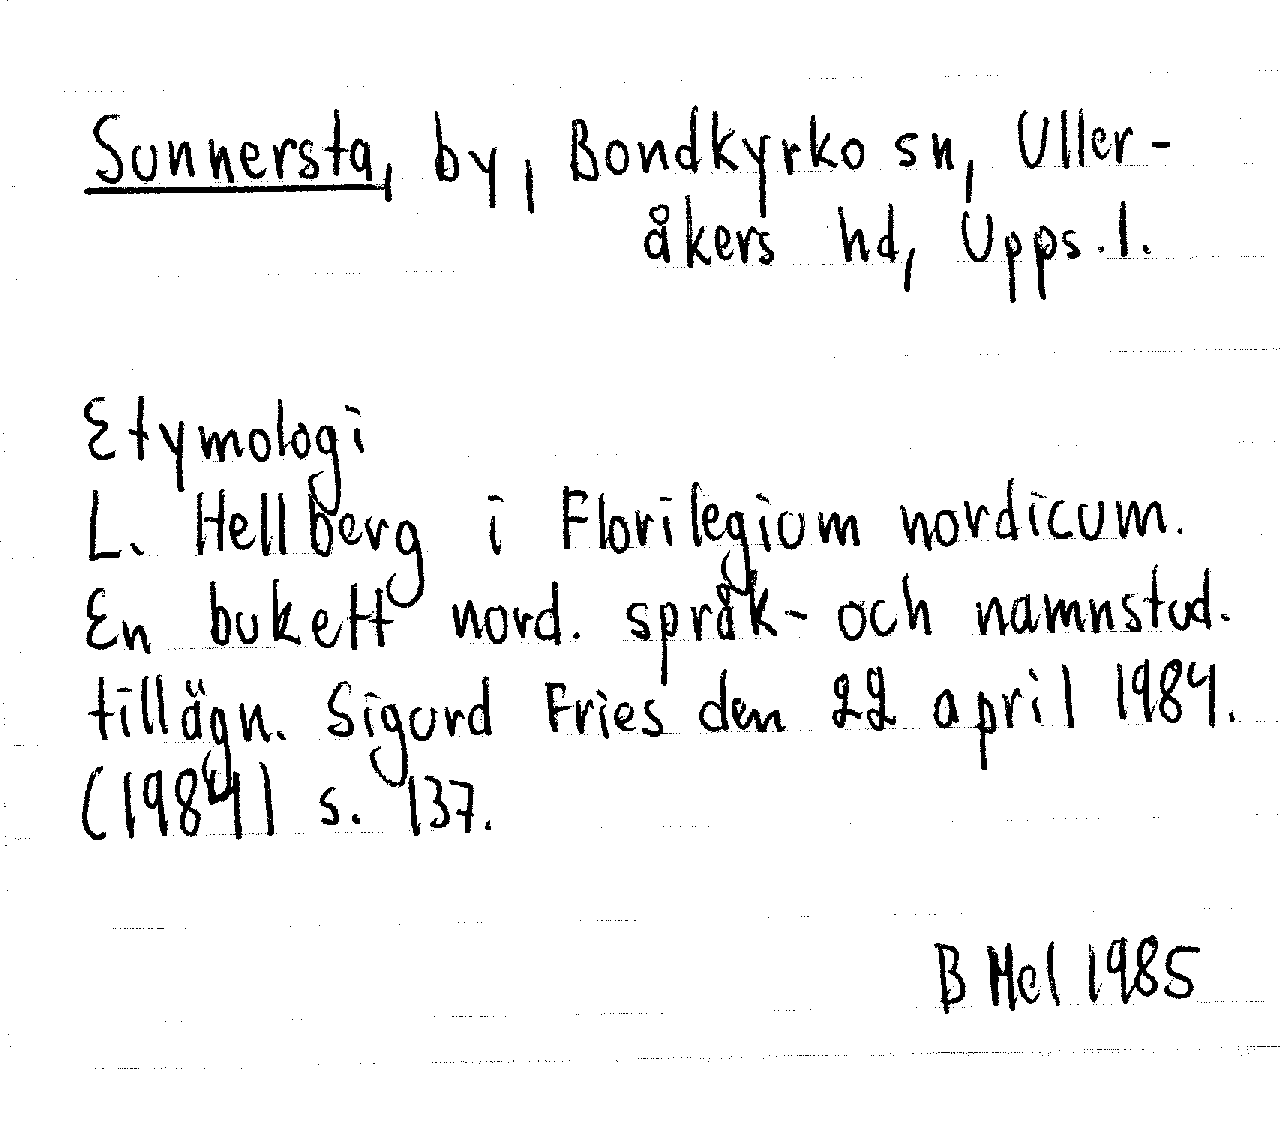 Sunnersta, by, Bondkyrko sn, Uller-
åkers hd, Upps.l.
Etymologi
L. Hellberg i Florilegium nordicum.
En bukett nord. språk- och namnstud.
tillägn. Sigurd Fries den 22 april 1984.
(1984) s. 137.
B Hel 1985